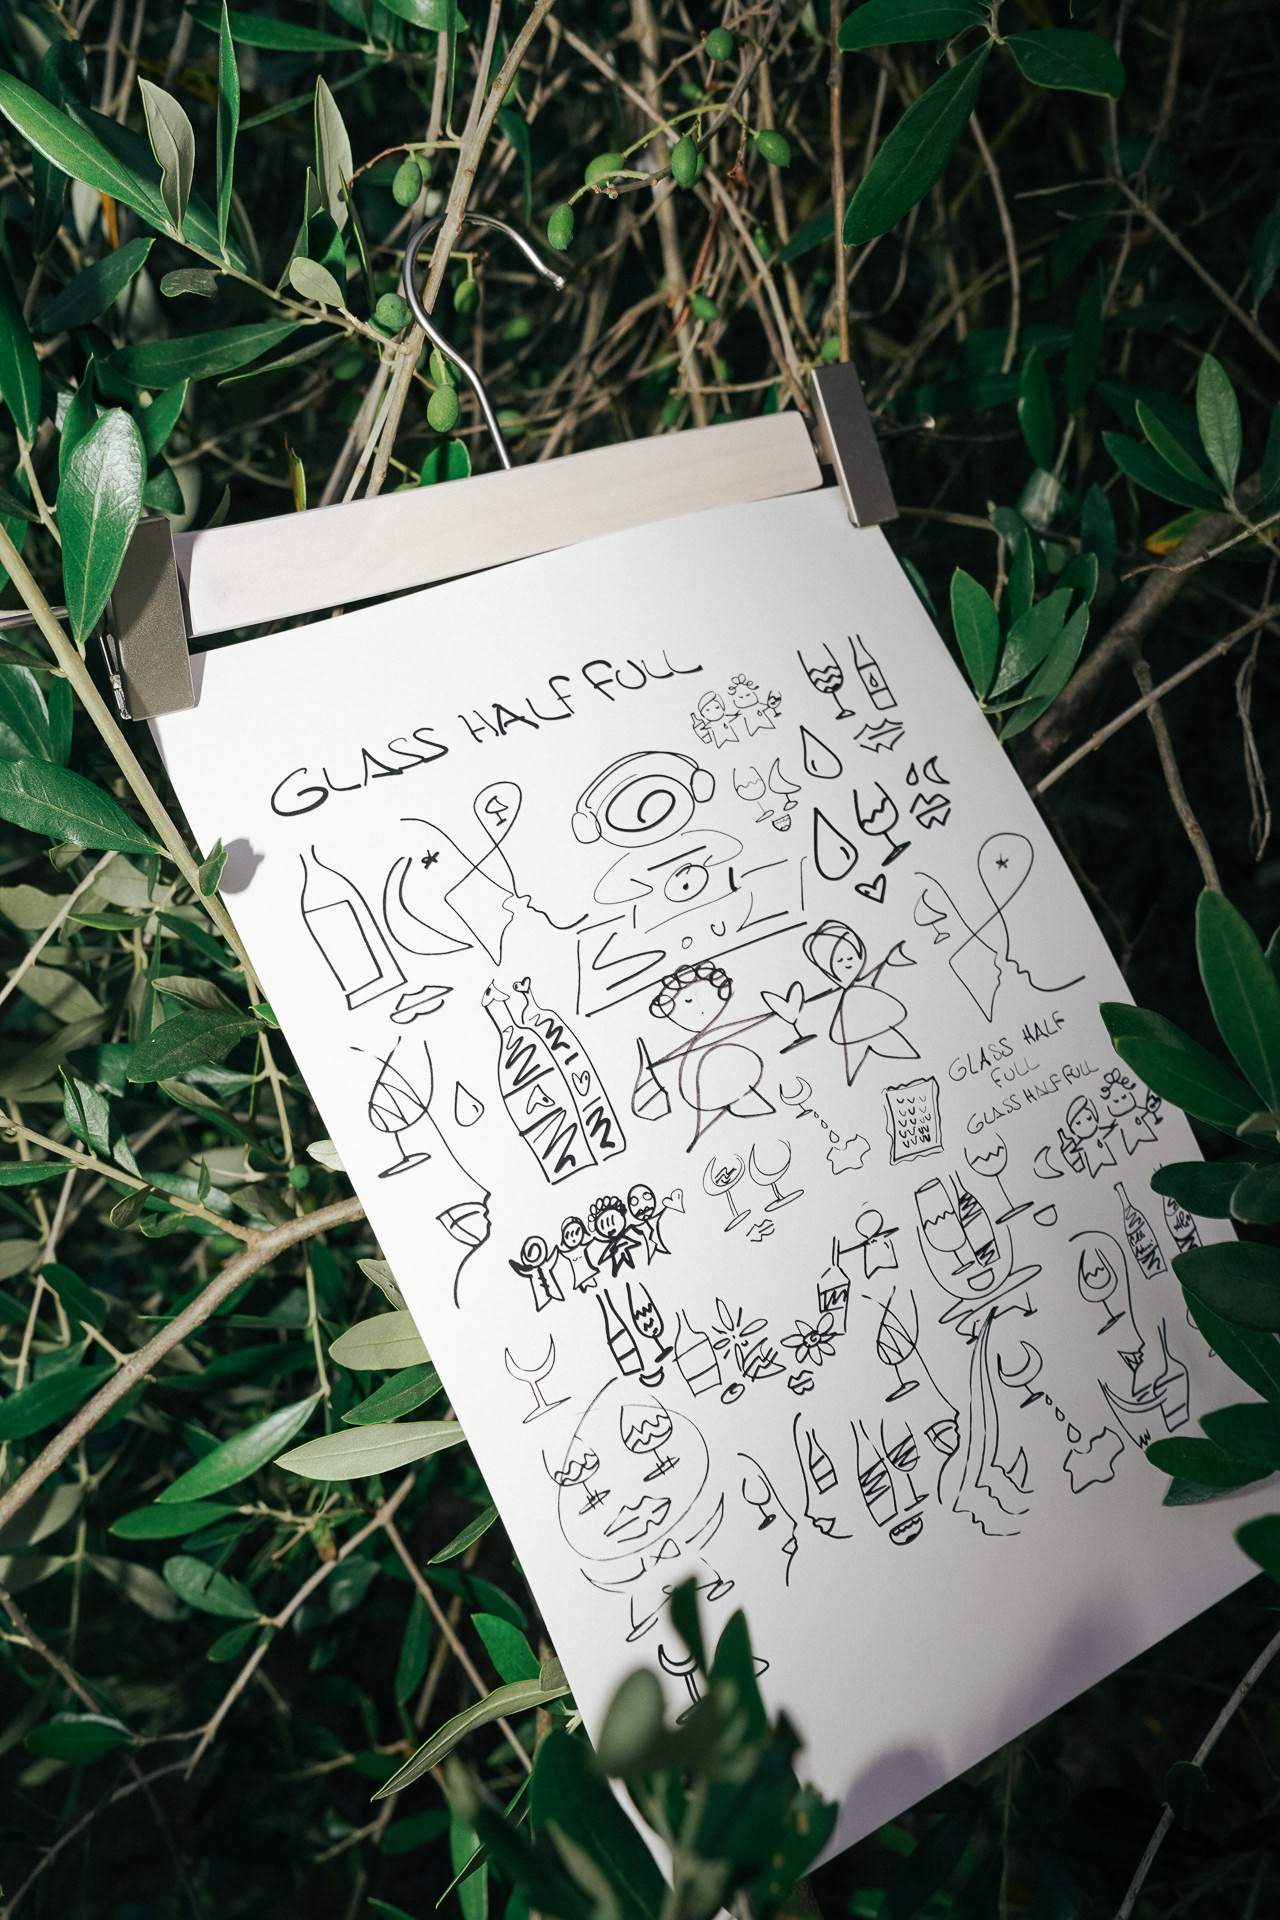 GLASS HALF FULL
SOUL
GLASS HALF
FULL
GLASS HALF FULL